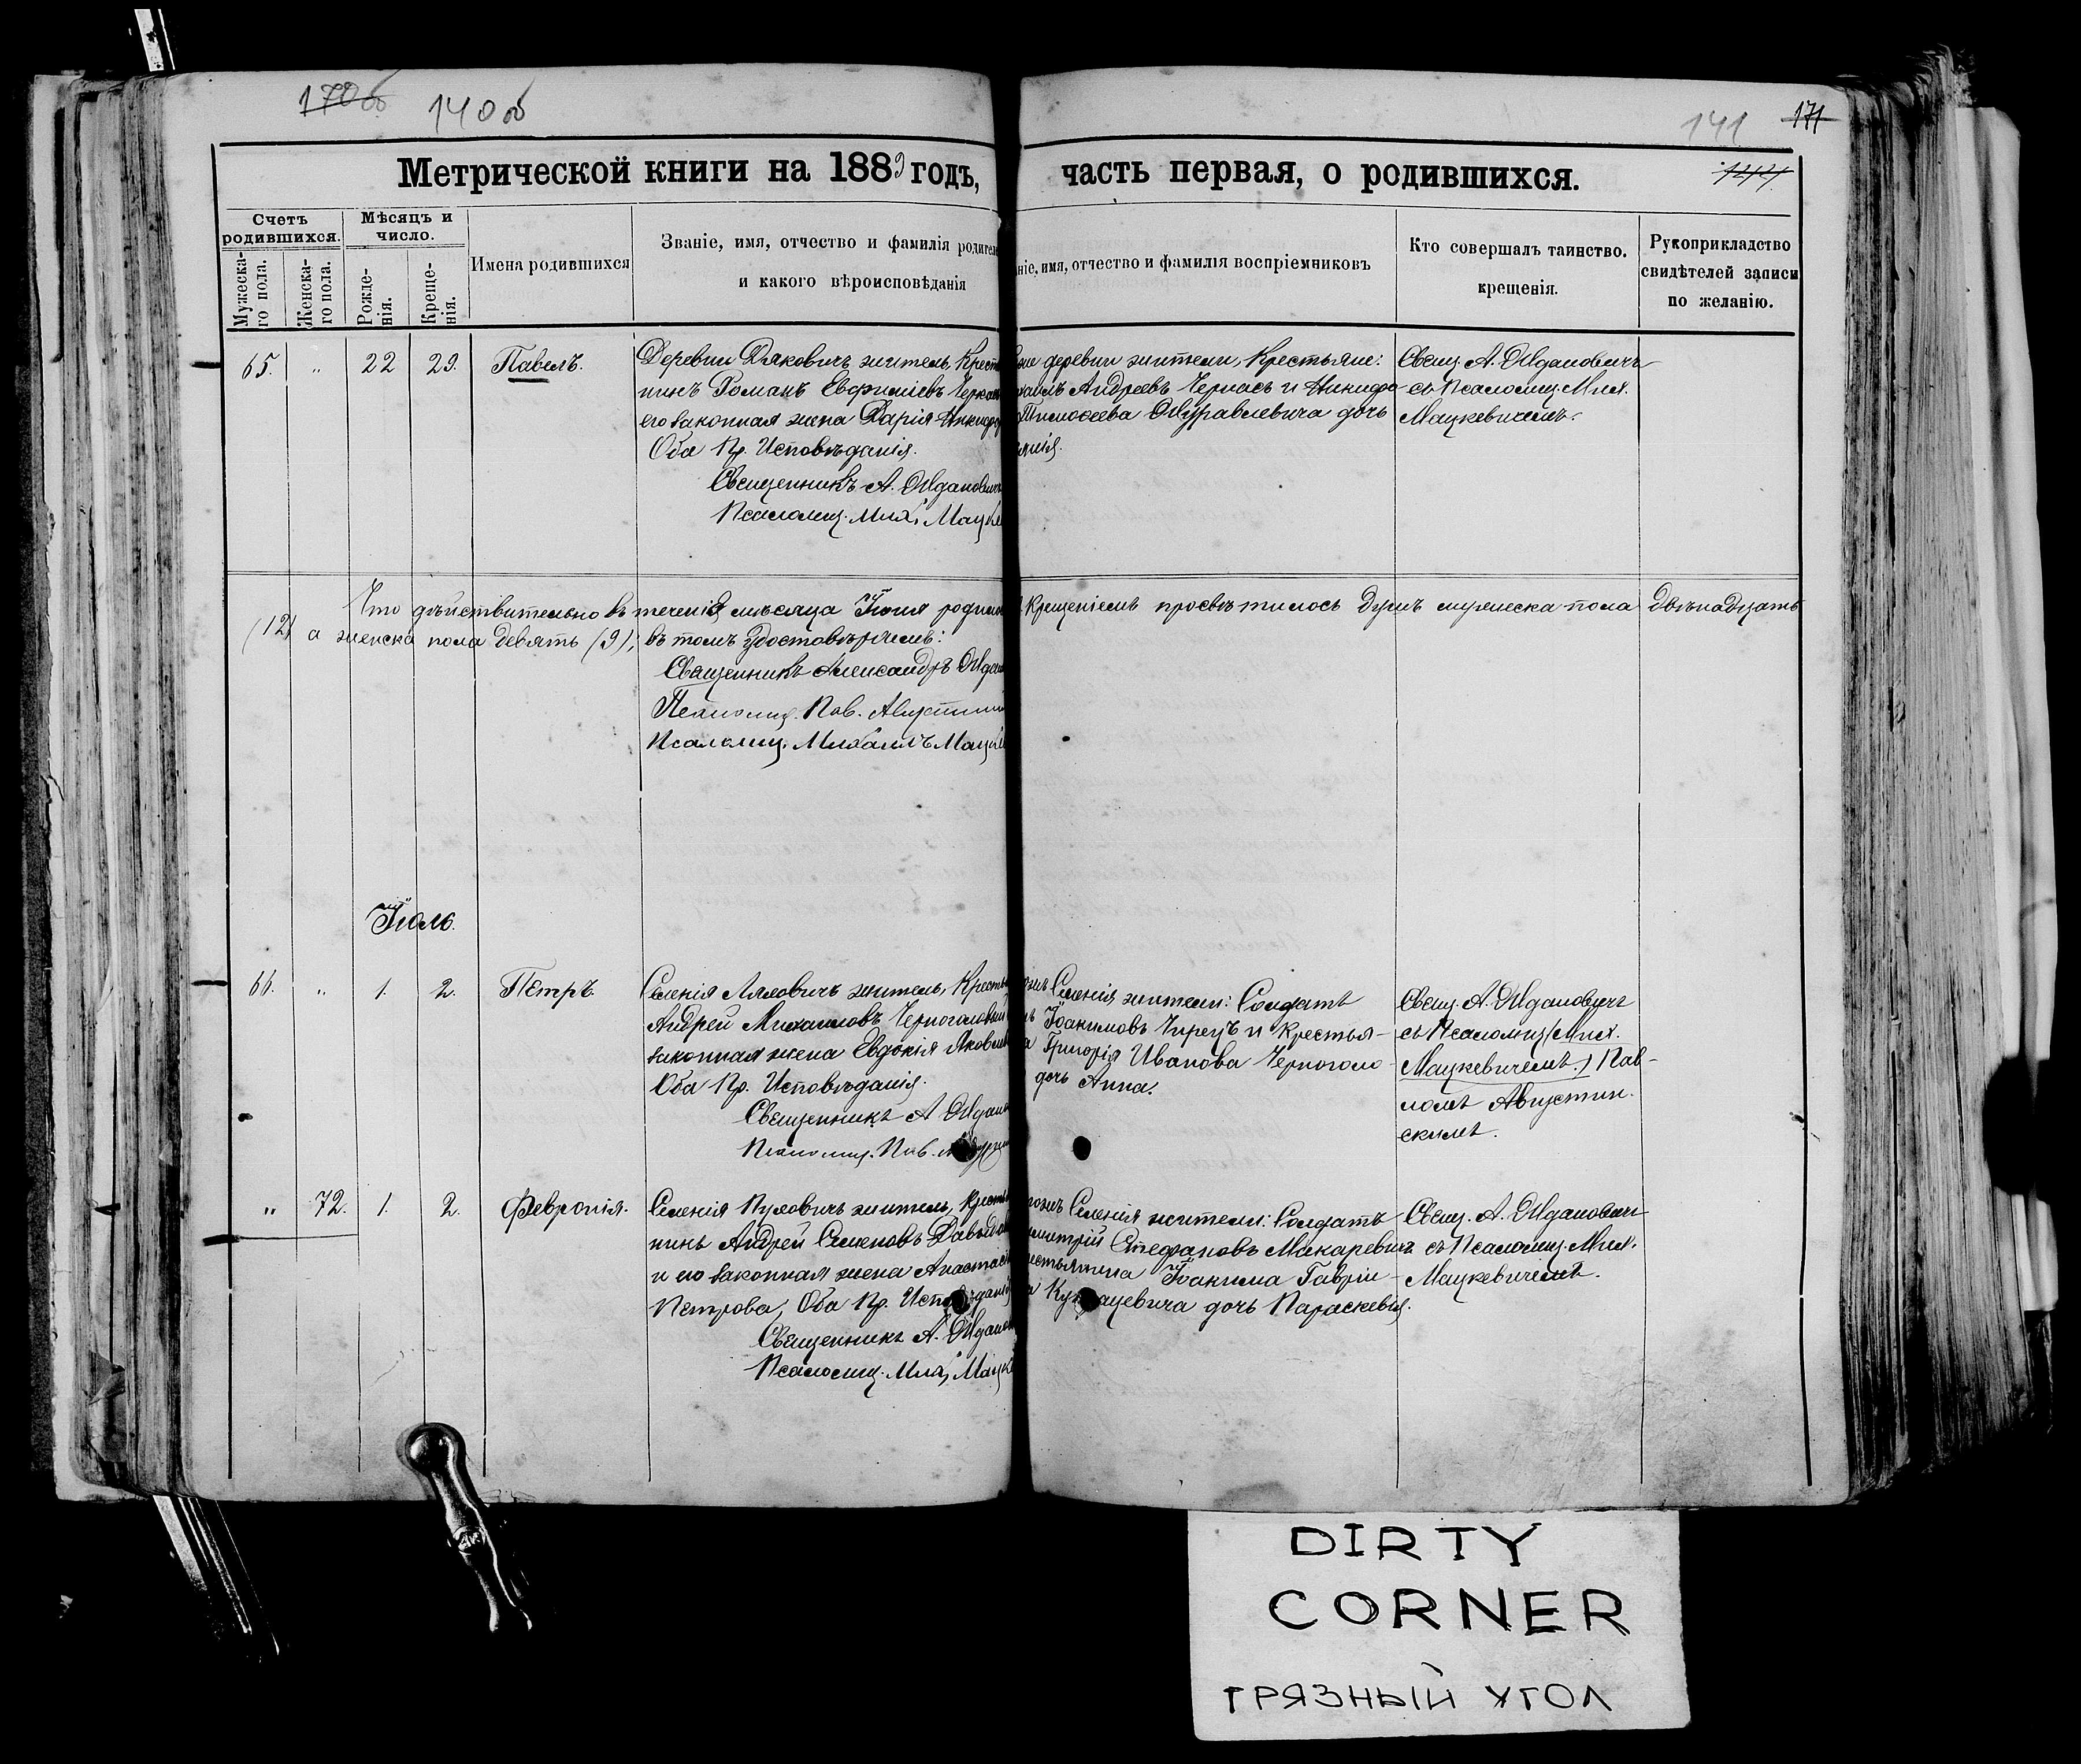 170об 140об
141 171
Метрической книги на 1889 годъ, часть первая, о родившихся.
Счетъ родившихся.
Мужеска-го пола.
Женска-го пола.
Мѣсяцъ и число.
Рожде-нія.
Креще-нія.
Имена родившихся
Званіе, имя, отчество и фамилія родител
и какого вѣроисповѣданія
ніе, имя, отчество и фамилія воспріемниковъ
Кто совершалъ таинство.
крещенія.
Рукоприкладство
свидѣтелей записи
по желанію.
65. " 22 29. Павелъ.
Деревни Дяковичъ житель, Крест
нинъ Романъ Евфиміевъ Черка
его законная жена Дарія Никифо
Оба Пр. Исповѣданія.
Священникъ А. Ждановичъ
Псаломщ. Мих. Мацке
же деревни жители, Крестьяне:
хаилъ Андреевъ Чернасъ и Никифо
Тимоѳеева Журавлевича дочь
Свещ. А. Ждановичъ
съ Псаломщ. Мих.
Мацкевичемъ.
Что дѣйствительно въ теченіе мѣсяца Іюня родило крещеніемъ просвѣтилось Душъ мужеска пола двѣнадцать
(12) а женска пола Девять (9); въ томъ удостовѣряемъ:
Священникъ Александръ Ждан
Псаломщ. Пав. Августин
Псаломщ. Михаилъ Мацке
Іюль.
66. " 1. 2. Петръ.
Селенія Ляховичъ житель, Кресть
Андрей Михаиловъ Черноголовый
законная жена Евдокія Яковле
Оба Пр. Исповѣданія.
Священникъ А Ждано
Псаломщ. Пав.
Селенія жители: Солдатъ
Іоакимовъ Чирецъ и Крестья-
Григорія Иванова Черноголо
дочь Анна.
Свещ. А. Ждановичъ
съ Псаломщ. (Мих.
Мацкевичемъ.) Пав-
ломъ Августин.
скимъ.
" 72. 1. 2. Февронія.
Селенія Пуховичъ житель, Кресть
нинъ Андрей Семеновъ Давыдо
и его законная жена Анастасі
Петрова, Оба Пр. Исповѣданія
Священникъ А. Ждано
Псаломщ. Мих. Мацке
Селенія жители: Солдатъ
митрій Стефановъ Макаревичъ
естьянина Іоакима Гаврiи-
дочь Параскевія.
Свещ. А. Ждановичъ
съ Псаломщ. Мих.
Мацкевичемъ.
DIRTY
CORNER
ГРЯЗНЫЙ УГОЛ